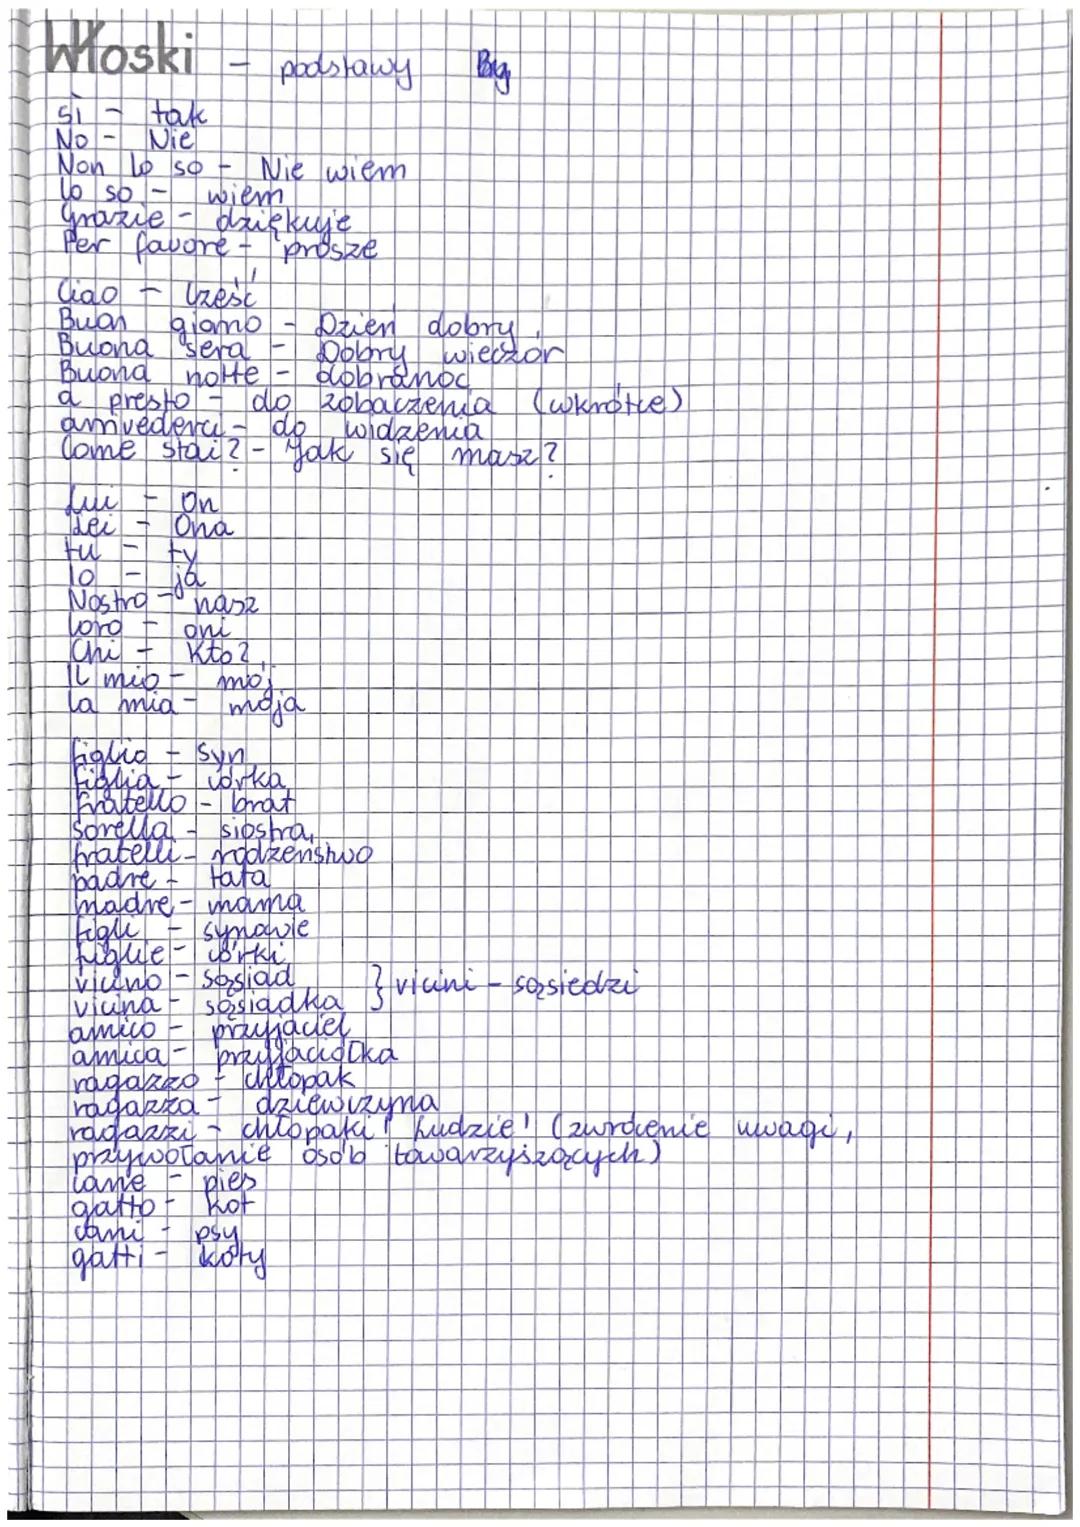 Włoski - podstawy
sì - tak
No - Nie
Non lo so - Nie wiem
lo so - wiem
Grazie - dziękuje
Per favore - prosze
Ciao - Cześć
Buon giorno - Dzień dobry
Buona sera - Dobry wieczór
Buona notte - dobranoc
a presto - do zobaczenia (wkrótce)
arrivederci - do widzenia
Come stai? - Jak się masz?
Lui - On
Lei - Ona
tu - ty
Io - ja
Nostro - nasz
loro - oni
Chi - Kto?
Il mio - mój
la mia - moja
figlio - syn
figlia - córka
fratello - brat
sorella - siostra
fratelli - rodzeństwo
padre - tata
madre - mama
figli - synowie
figlie - córki
vicino - sąsiad
vicina - sąsiadka } vicini - sąsiedzi
amico - przyjaciel
amica - przyjaciółka
ragazzo - chłopak
ragazza - dziewczyna
ragazzi - chłopaki! Ludzie! (zwrócenie uwagi,
przywołanie osób towarzyszących)
cane - pies
gatto - kot
cani - psy
gatti - koty